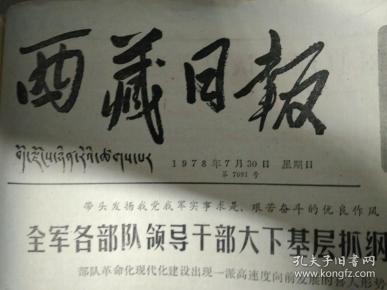 西藏日报
1978年7月30日 星期日
第7091号
带头发扬我党我军实事求是、艰苦奋斗的优良作风
全军各部队领导干部大下基层抓纲
部队革命化现代化建设出现一派高速度向前发展的喜人形势
孔夫子旧书网